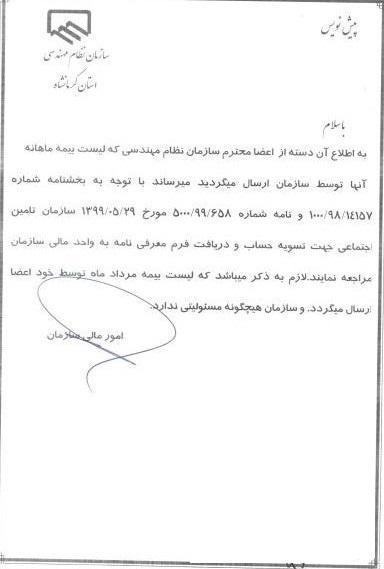 پیش نویس
سازمان نظام مهندسی
استان کرمانشاه
باسلام
به اطلاع آن دسته از اعضا محترم سازمان نظام مهندسی که لیست بیمه ماهانه
آنها توسط سازمان ارسال میگردید میرساند با توجه به بخشنامه شماره
۱۰۰۰/۹۸/۱۴۱۵۷ و نامه شماره ۵۰۰۰/۹۹/۶۵۸ مورخ ۱۳۹۹/۰۵/۲۹ سازمان تامین
اجتماعی جهت تسویه حساب و دریافت فرم معرفی نامه به واحد مالی سازمان
مراجعه نمایند.لازم به ذکر میباشد که لیست بیمه مرداد ماه توسط خود اعضا
ارسال میگردد. و سازمان هیچگونه مسئولیتی ندارد.
امور مالی سازمان